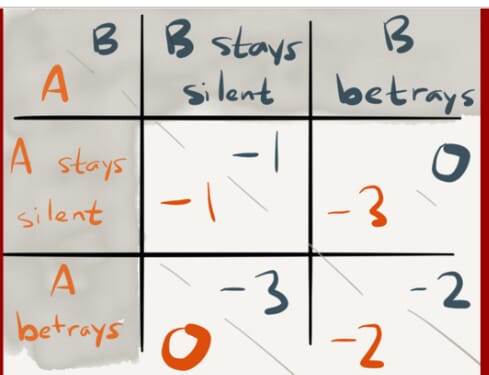 B
A
B stays
silent
B
betrays
A stays
silent
-1
-1
0
-3
A
betrays
-3
0
-2
-2